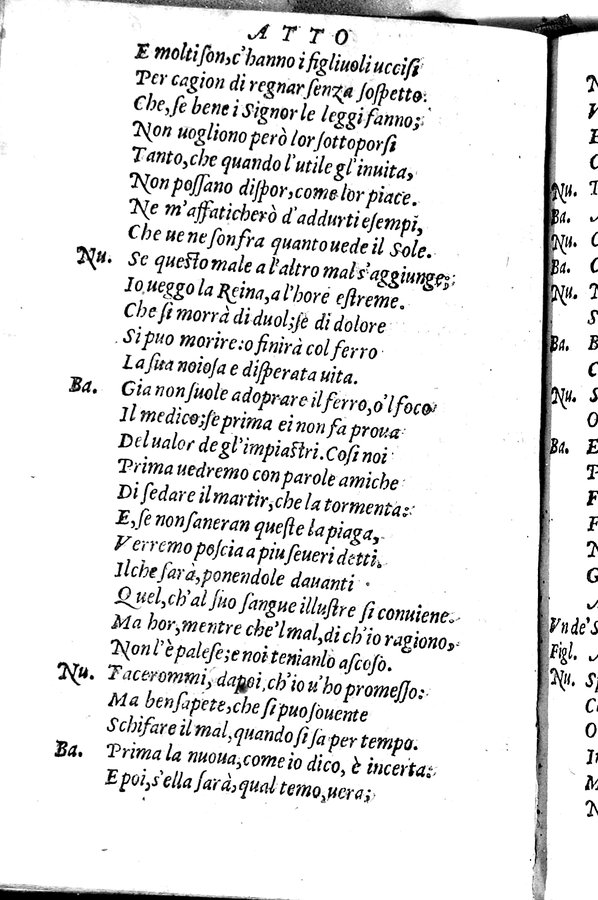 ATTO
E molti son, c'hanno i figliuoli uccisi
Per cagion di regnar senza sospetto.
Che, se bene i Signor le leggi fanno;
Non uogliono però lor sottoporsi
Tanto, che quando l'utile gl'inuita,
Non possano dispor, come lor piace.
Ne m'affaticherò d'addurti esempi,
Che ue ne son fra quanto uede il Sole.
Nu. Se questo male a l'altro mal s'aggiunge;
Io ueggo la Reina, a l'hore estreme.
Che si morrà di duol; se di dolore
Si puo morire: o finirà col ferro
La sua noiosa e disperata uita.
Ba. Gia non suole adoprare il ferro, o'l foco
Il medico; se prima ei non fa proua
Del ualor de gl'impiastri. Cosi noi
Prima uedremo con parole amiche
Di sedare il martir, che la tormenta:
E, se non saneran queste la piaga,
Verremo poscia a piu seueri detti.
Il che sarà, ponendole dauanti
Quel, ch'al suo sangue illustre si conuiene.
Ma hor, mentre che'l mal, di ch'io ragiono,
Non l'è palese; e noi tenianlo ascoso.
Nu. Tacerommi, dapoi, ch'io u'ho promesso:
Ma ben sapete, che si puo souente
Schifare il mal, quando si sa per tempo.
Ba. Prima la nuoua, come io dico, è incerta:
E poi, s'ella sarà, qual temo, uera;
N
V
E
C
Nu. T
Ba. A
Nu. C
Ba. C
Nu. T
S
Ba. B
C
Nu. S
O
Ba. E
T
F
F
N
G
A
Vn de' S
Figl. A
Nu. Sp
Co
O
In
M
N